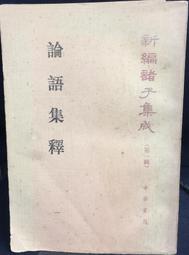 新編諸子集成
(第一輯)
中華書局
論語集釋
一